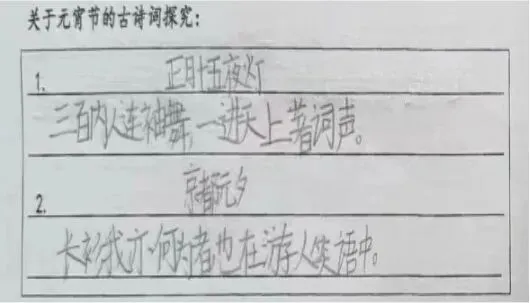 关于元宵节的古诗词探究:
1. 正月十五夜灯
三百内人连袖舞,一进天上著词声。
2. 京都元夕
长衫我亦何为者也在游人笑语中。